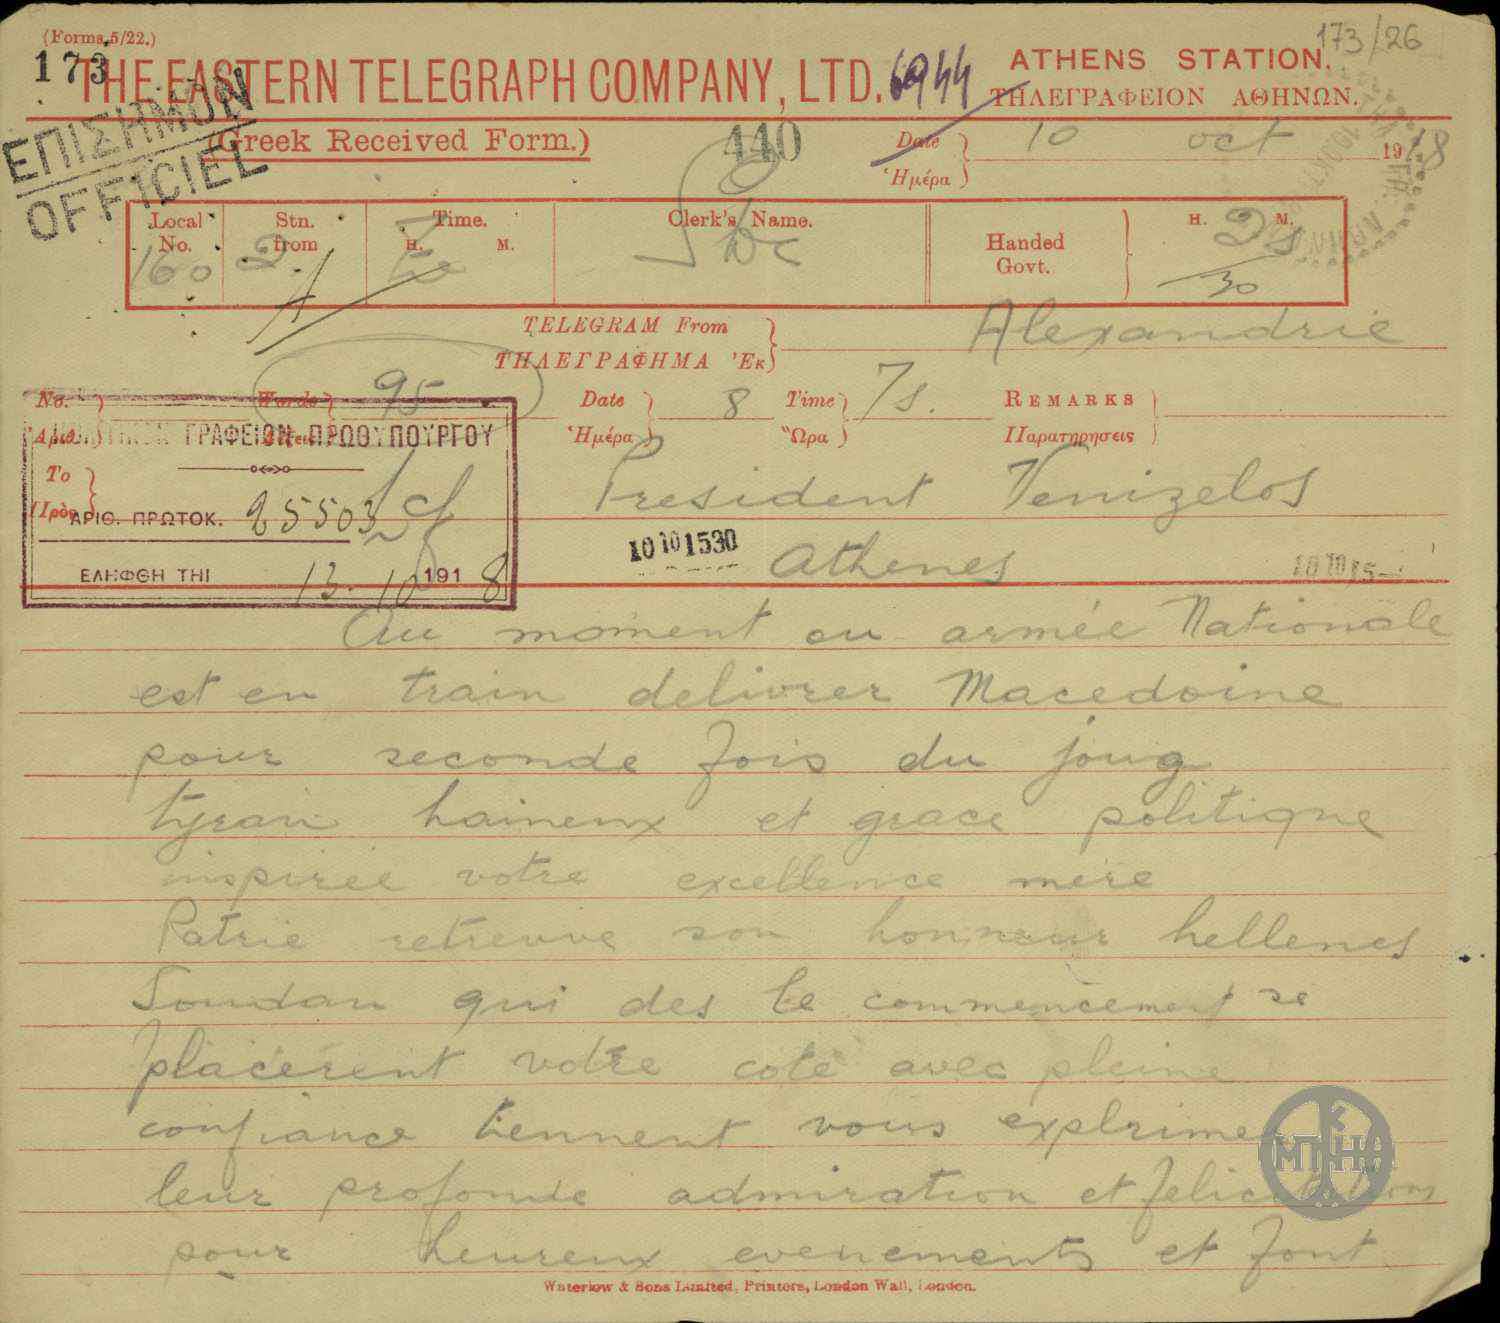 (Forms.5/22.)
173/26
173
THE EASTERN TELEGRAPH COMPANY, LTD.
6944
ATHENS STATION.
ΤΗΛΕΓΡΑΦΕΙΟΝ ΑΘΗΝΩΝ.
ΕΠΙΣΗΜΟΝ
OFFICIEL
(Greek Received Form.)
440
Date
Ἡμέρα
10 oct 1918
Local No.
Stn. from
Time.
H. M.
Clerk's Name.
Handed Govt.
H. M.
160
30
TELEGRAM From
ΤΗΛΕΓΡΑΦΗΜΑ Ἐκ
Alexandrie
No.
Ἀριθ.
Words
95
Date
Ἡμέρα
8
Time
Ὥρα
7s.
REMARKS
Παρατηρησεις
ΠΟΛΙΤΙΚΟΝ ΓΡΑΦΕΙΟΝ ΠΡΩΘΥΠΟΥΡΓΟΥ
To
Πρὸς
President Venizelos
ΑΡΙΘ. ΠΡΩΤΟΚ. 25503
10 10 1530
Athenes
10 10 15
ΕΛΗΦΘΗ ΤΗΙ 13-10 1918
Au moment ou armée Nationale
est en train delivrer Macedoine
pour seconde fois du joug
tyran haineux et grace politique
inspirée votre excellence mère
Patrie retreuve son honneur hellenes
Soudan qui des le commencement se
placèrent votre coté avec pleine
confiance tiennent vous explrime
leur profonde admiration et felicitations
pour heureux evenements et font
ΜΠΗΑ
Waterlow & Sons Limited, Printers, London Wall, London.